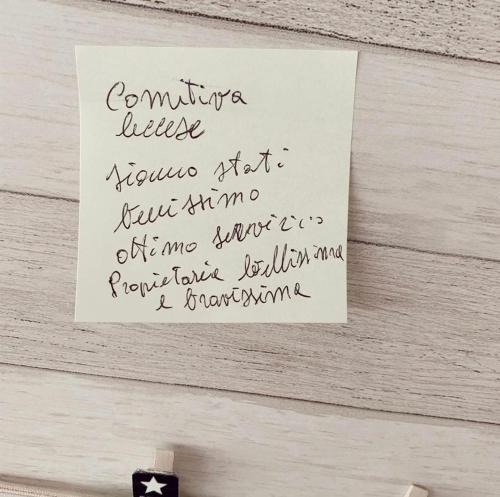 Comitiva
leccese
siamo stati
benissimo
ottimo servizio
Proprietaria bellissima
e bravissima